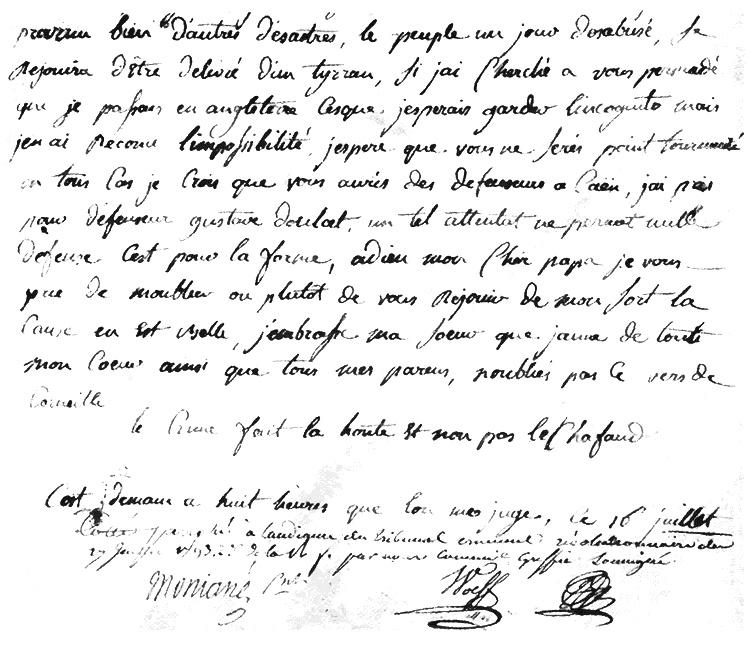 prevenu bien d'autres désastres, le peuple un jour desabusé, se
Rejouira d'être delivré d'un tyrran, si jai Cherché a vous persuadé
que je passais en angleterre Cesque jesperais garder lincognito mais
jen ai Reconu limpossibilité, jespere que vous ne serés point tourmenté
en tous Cas je Crois que vous aurés des defenseurs a Caën, jai pris
pour defenseur gustave doulcet, un tel attentat ne permet nulle
defense Cest pour la forme, adieu mon Cher papa je vous
prie de moublier ou plutot de vous Rejouir de mon sort la
Cause en Est belle, jembrasse ma soeur que jaime de toute
mon Coeur ainsi que tous mes parens, noubliés pas Ce vers de
Corneille
le Crime fait la honte Et non pas lEchafaud
Cest demain a huit heures que lon me juge, Ce 16 juillet
a laudience du tribunal criminel révolutionnaire du
de la R f. par nous Commis Greffier Soussigné
Montané Pnt
Wolff